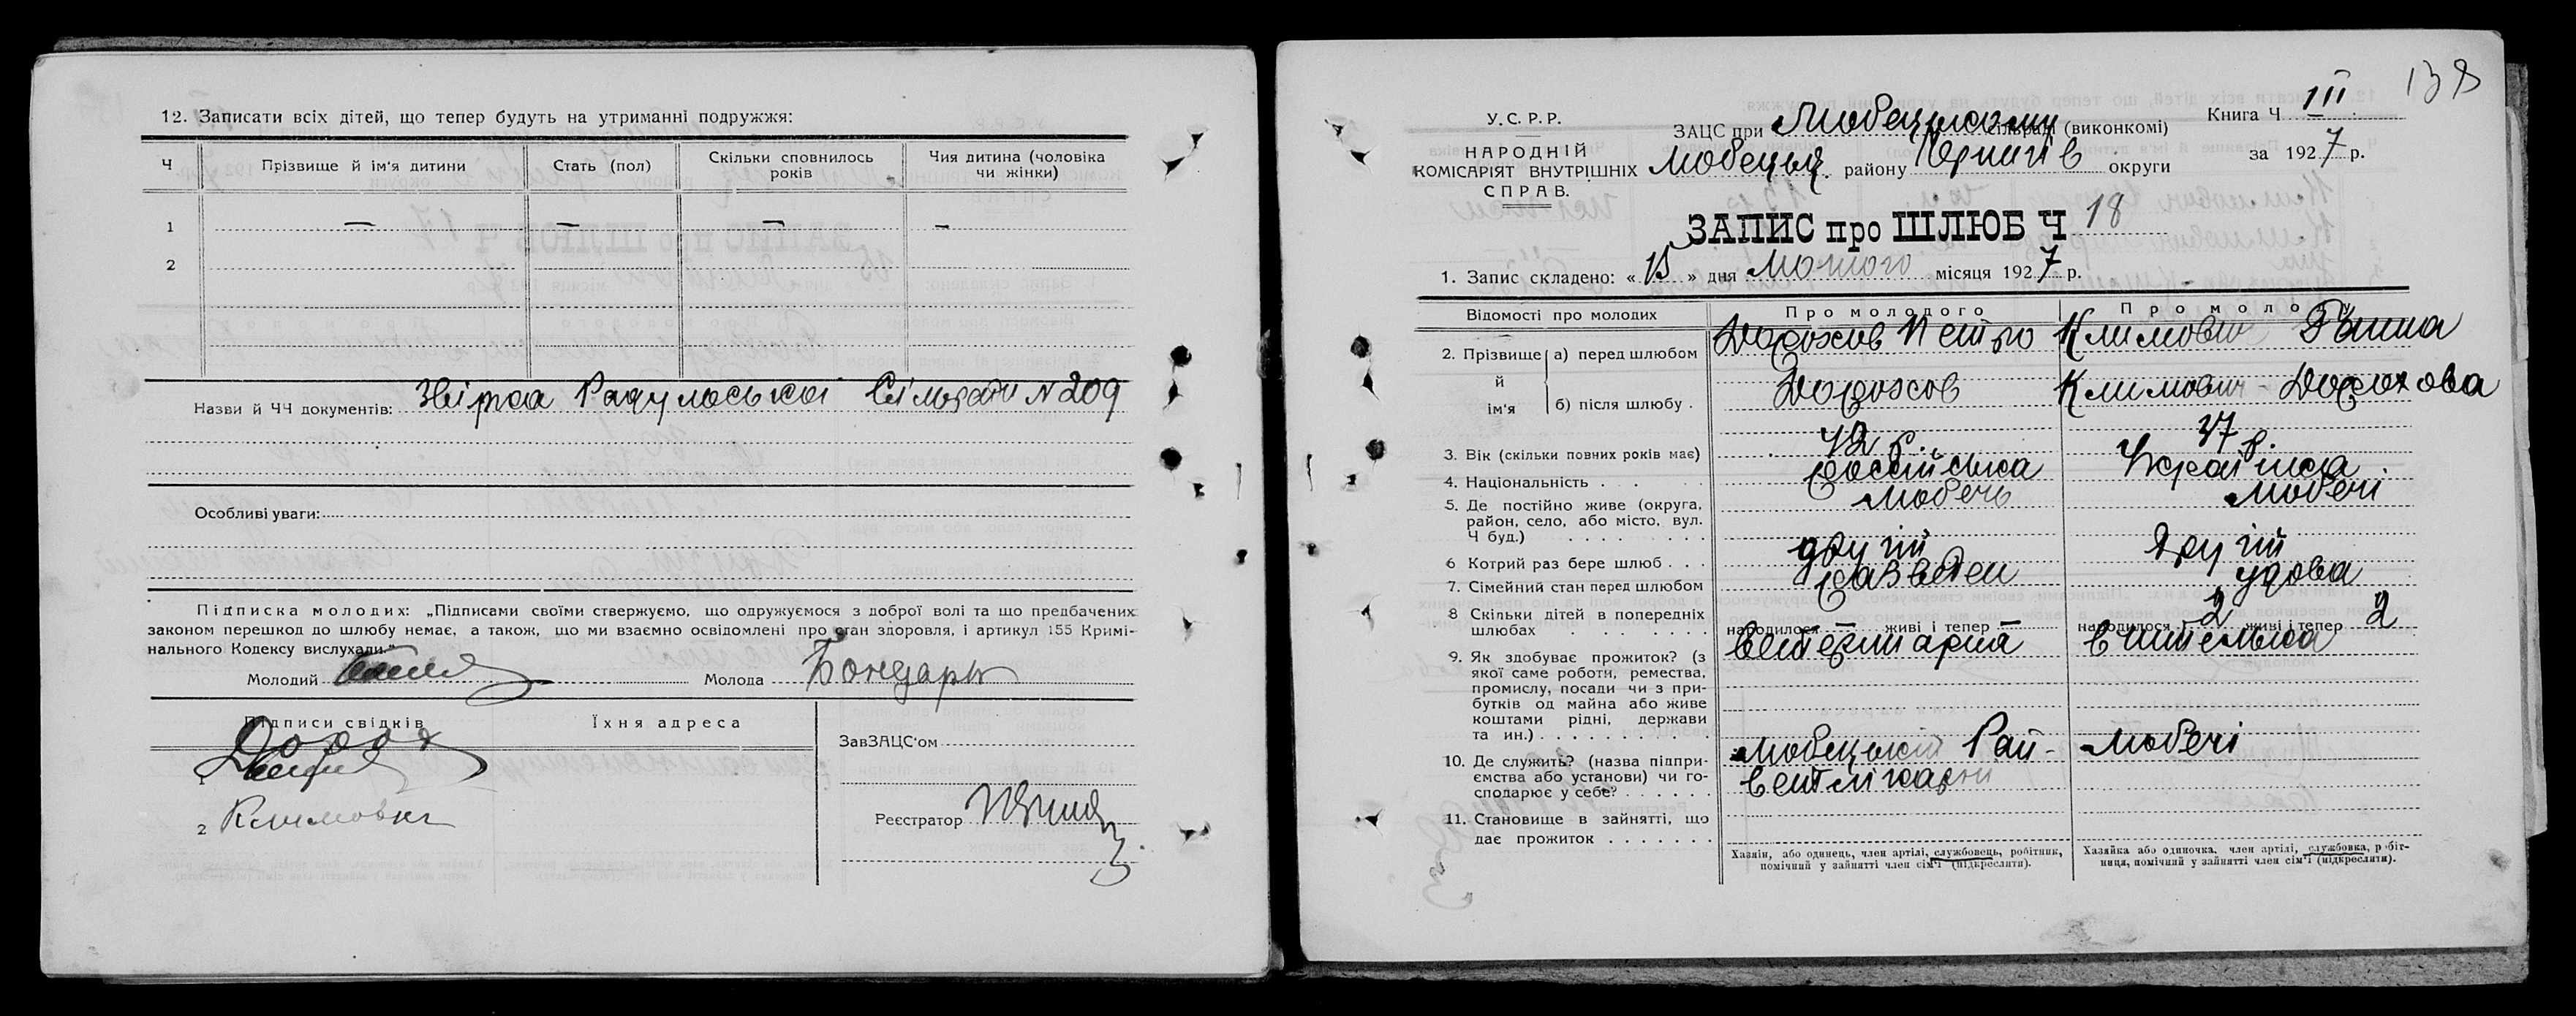 12. Записати всіх дітей, що тепер будуть на утриманні подружжя:
Ч Прізвище й ім'я дитини Стать (пол) Скільки сповнилось років Чия дитина (чоловіка чи жінки)
1 — — — —
2
Назви й ЧЧ документів: Звірка Радульської Сільради N 209
Особливі уваги:
Підписка молодих: „Підписами своїми ствержуємо, що одружуємося з доброї волі та що предбачених
законом перешкод до шлюбу немає, а також, що ми взаємно освідомлені про стан здоровля, і артикул 155 Кримі-
нального Кодексу вислухали."
Молодий Молода Бондарь
Підписи свідків Їхня адреса
ЗавЗАЦС'ом
1
Реєстратор
2 Климович
138
У.С.Р.Р.
НАРОДНІЙ
КОМІСАРІЯТ ВНУТРІШНІХ
СПРАВ.
ЗАЦС при Любецькому сільраді (виконкомі)
Любецьк. району Черниг в округи
Книга Ч III
за 1927 р.
ЗАПИС про ШЛЮБ Ч 18
1. Запис складено: « 15 » дня Лютого місяця 1927 р.
Відомості про молодих Про молодого Про молоду
2. Прізвище й ім'я а) перед шлюбом Дорохов Петро Климович Ганна
б) після шлюбу . Дорохов Климович - Дорохова
3. Вік (скільки повних років має) 42 р. 37 р.
4. Національність . . . російська Українка
5. Де постійно живе (округа, Любечь Любечі
район, село, або місто, вул.
Ч буд.) . . . .
6 Котрий раз бере шлюб . . . другий Другий
7. Сімейний стан перед шлюбом разведен удова
8 Скільки дітей в попередніх шлюбах . . . . народилося — живі і тепер — народилося 2 живі і тепер 2
9. Як здобуває прожиток? (з ветеринария вчителька
якої саме роботи, ремества,
промислу, посади чи з при-
бутків од майна або живе
коштами рідні, держави
та ин.) . . . . . . .
10. Де служить? (назва підпри- Любецькій Рай- Любечі
ємства або установи) чи го- ветлікарні
сподарює у себе? . . . . . .
11. Становище в зайнятті, що
дає прожиток . . . . . . .
Хазяін, або одинець, член артілі, службовець, робітник,
помічний у зайнятті член сім'ї (підкреслити).
Хазяйка або одиночка, член артілі, службовка, робіт-
ниця, помічний у зайнятті член сім'ї (підкреслити).